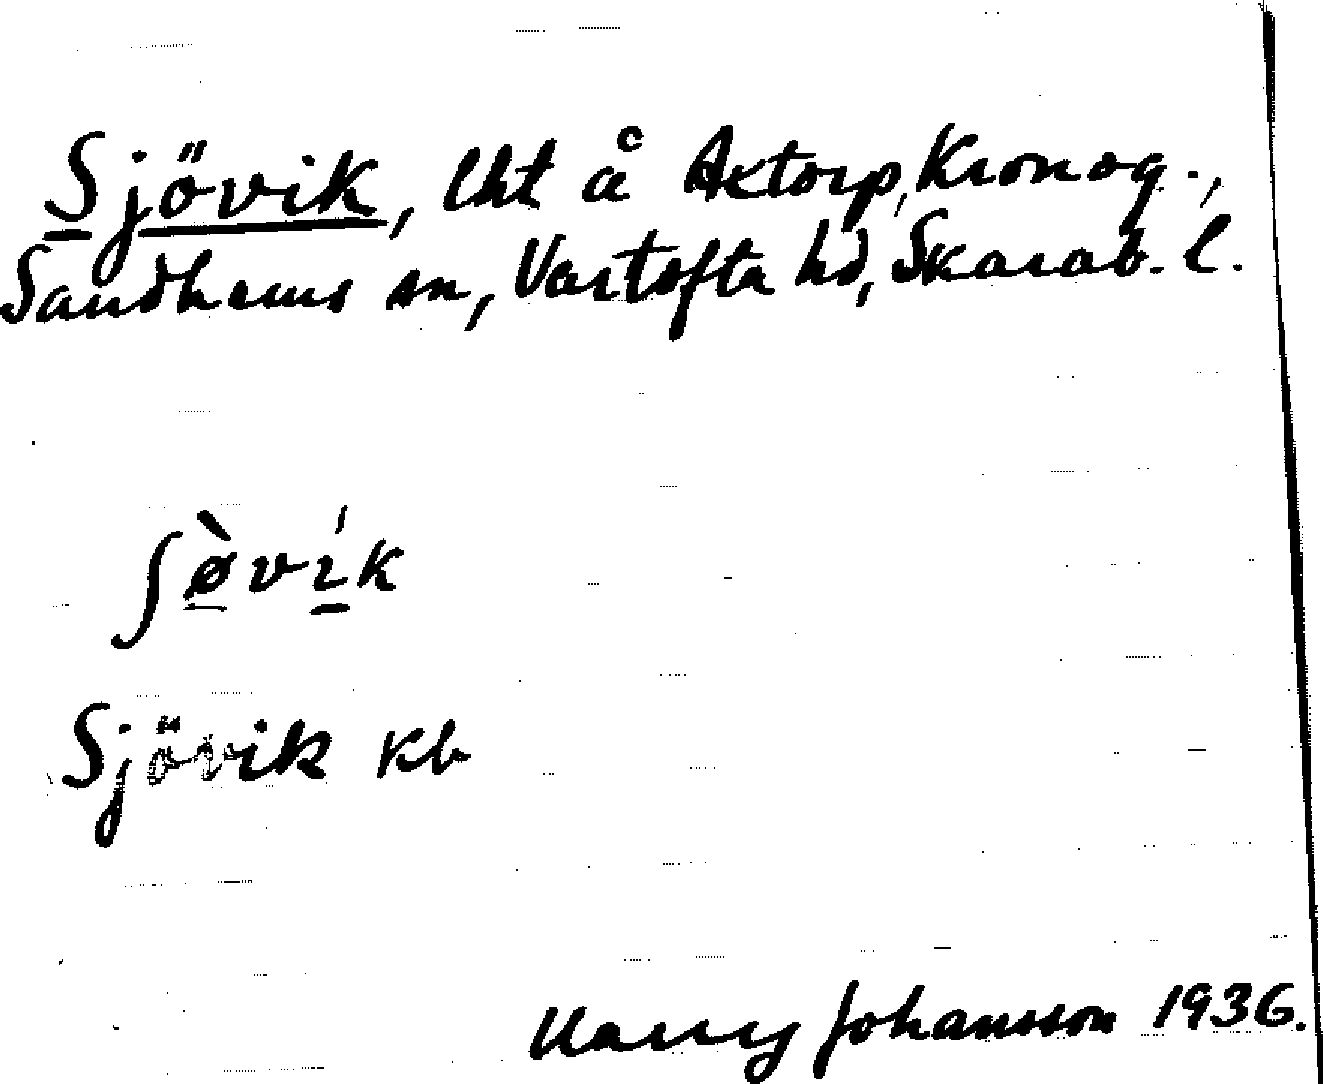 Sjövik, lht å Axtorp, Kronog.,
Sandhems sn, Vartofta hd, Skarab. l.
ʃø̀vík
Sjövik kb
Harry Johansson 1936.